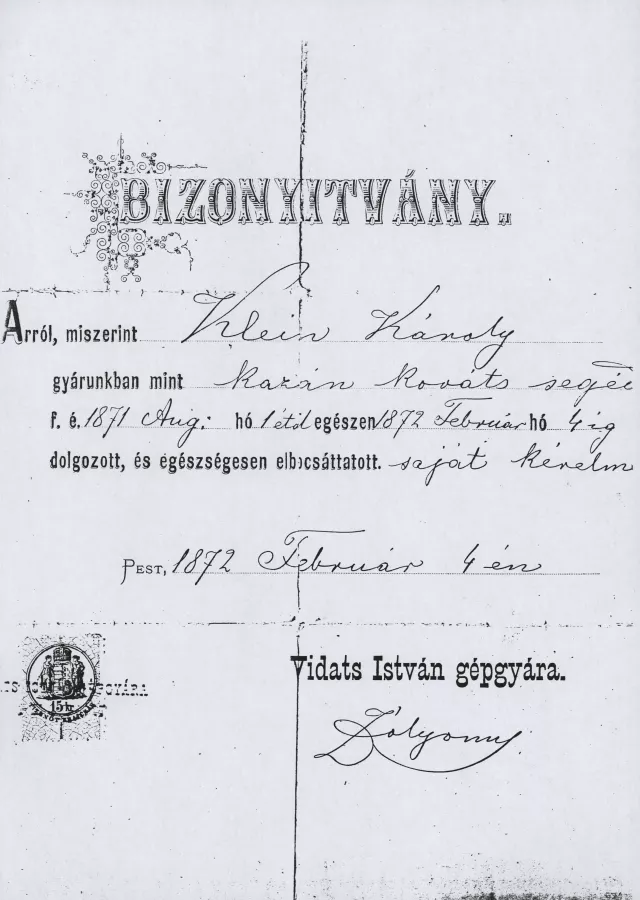 BIZONYITVÁNY.
Arról, miszerint Klein Károly
gyárunkban mint kazán kováts
f. é. 1871 Aug: hó 1 étől egészen 1872 Február hó 4 ig
dolgozott, és egészségesen elbocsáttatott. saját kérelm
PEST, 1872 Február 4 én
Vidats István gépgyára.
GYÁRA
15 kr